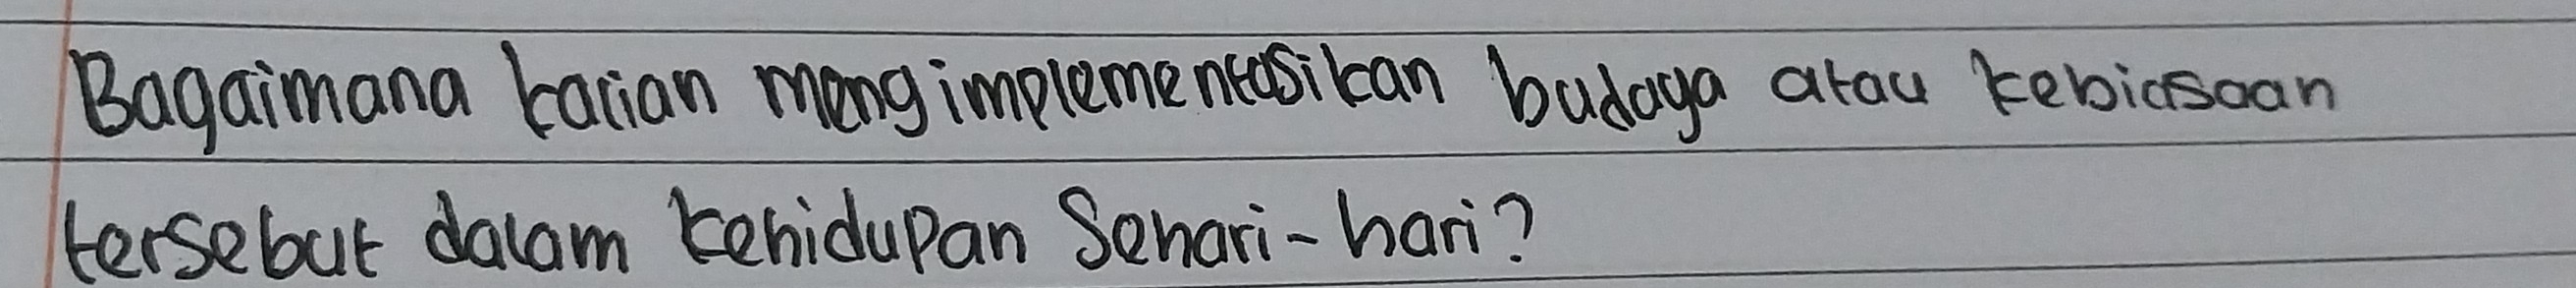 Bagaimana kalian mengimplementasikan budaya atau kebiasaan
tersebut dalam kehidupan Sehari-hari?